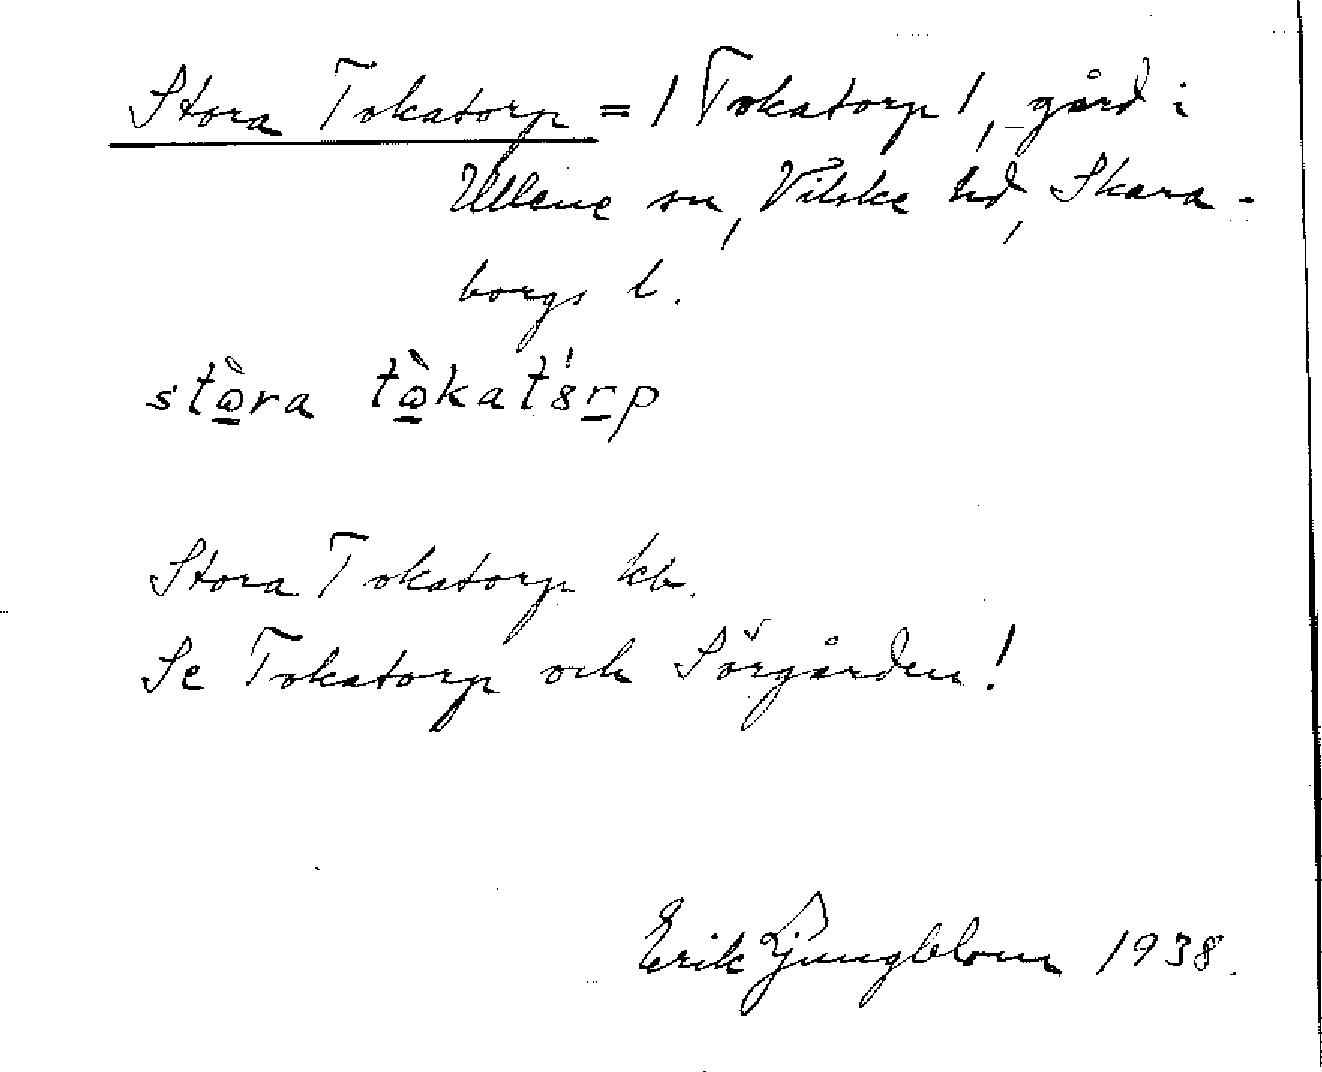 Stora Tokatorp = / Tokatorp /, gård i
Ullene sn, Vilske hd, Skara-
borgs l.
stòra tòkatórp
Stora Tokatorp kb.
Se Tokatorp och Sörgården!
Erik Ljungblom 1938.